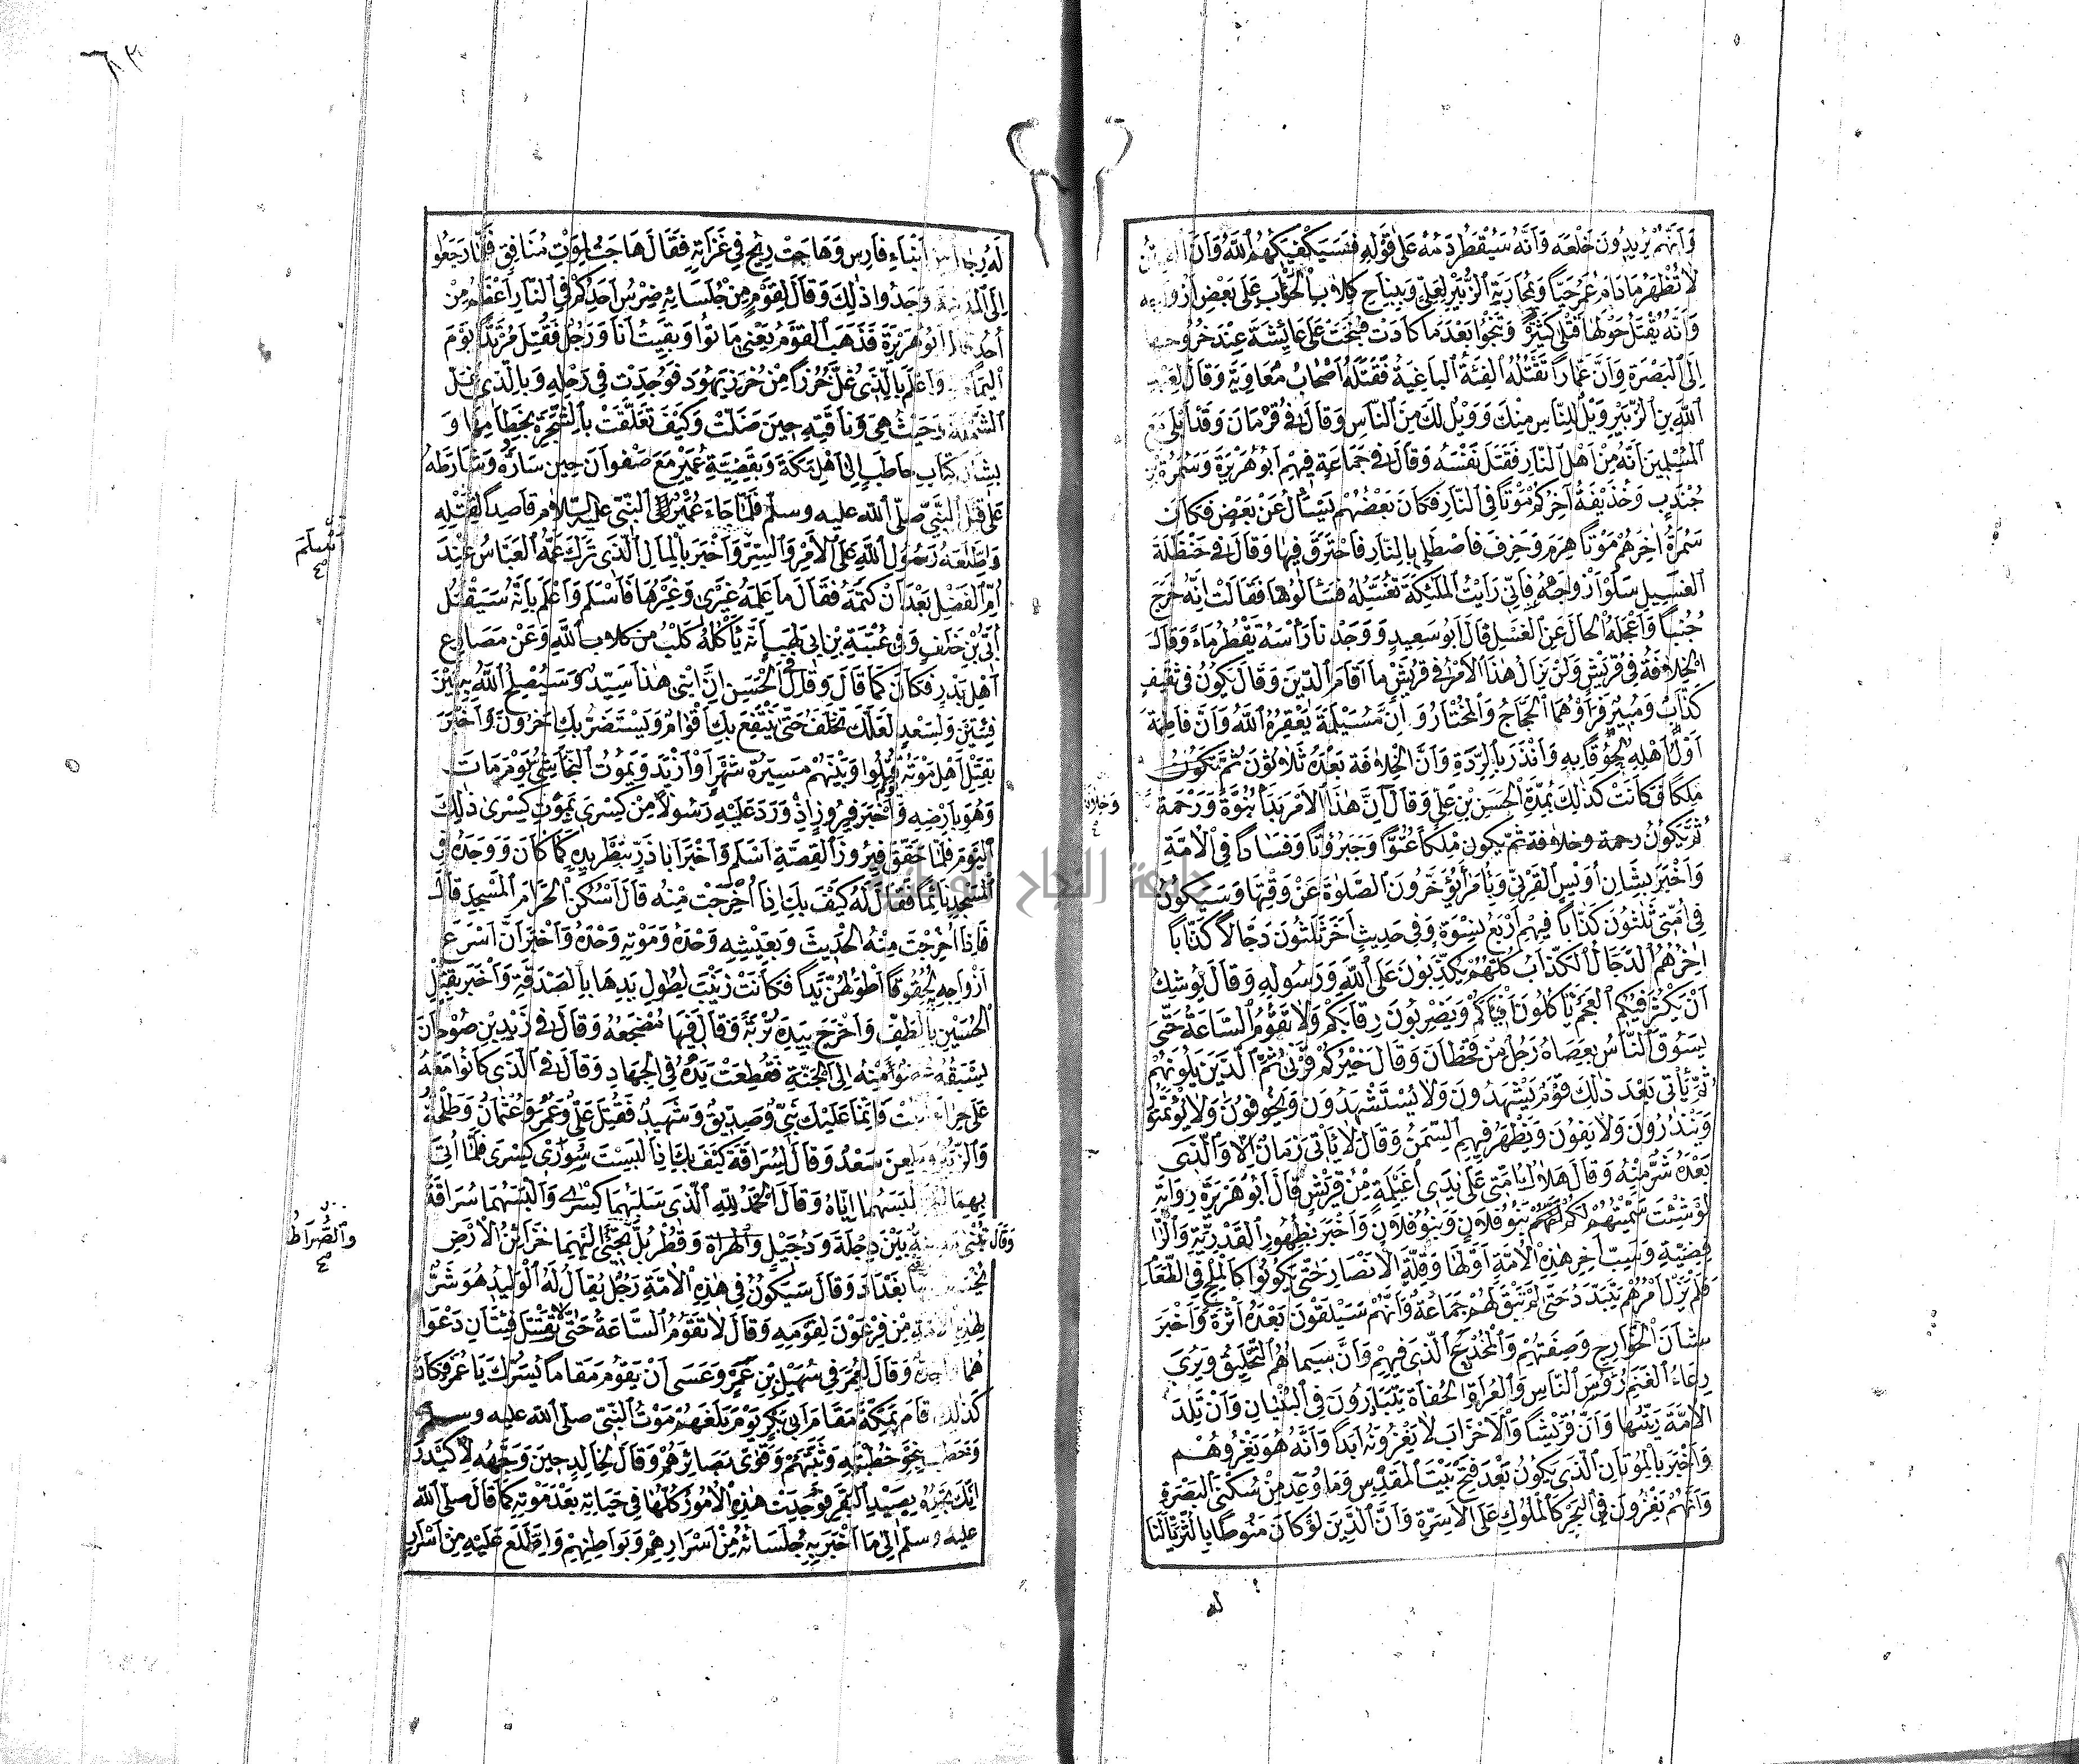 وَاَنَّهُمْ يُرِيدُونَ خَلْعَهُ وَاَنَّهُ سَيَقْطُرُ دَمُهُ عَلَى قَوْلِهِ فَسَيَكْفِيكَهُمُ اللَّهُ وَاَنَّ الْفِتَنَ
لَا تَظْهَرُ مَا دَامَ عُمَرُ حَيًّا وَبِمُحَارَبَةِ الزُّبَيْرِ لِعَلِيٍّ وَبِنُبَاحِ كِلَابِ الْحَوْأَبِ عَلَى بَعْضِ اَزْوَاجِهِ
وَاَنَّهُ يُقْتَلُ حَوْلَهَا قَتْلَى كَثِيرَةٌ وَتَنْجُوا بَعْدَ مَا كَادَتْ فَنَبَحَتْ عَلَى عَائِشَةَ عِنْدَ خُرُوجِهَا
اِلَى الْبَصْرَةِ وَاَنَّ عَمَّارًا تَقْتُلُهُ الْفِئَةُ الْبَاغِيَةُ فَقَتَلَهُ اَصْحَابُ مُعَاوِيَةَ وَقَالَ لِعَبْدِ
اللَّهِ بْنِ الزُّبَيْرِ وَيْلٌ لِلنَّاسِ مِنْكَ وَوَيْلٌ لَكَ مِنَ النَّاسِ وَقَالَ فِي قُزْمَانَ وَقَدْ اَبْلَى مَعَ
الْمُسْلِمِينَ اَنَّهُ مِنْ اَهْلِ النَّارِ فَقَتَلَ نَفْسَهُ وَقَالَ فِي جَمَاعَةٍ فِيهِمْ اَبُو هُرَيْرَةَ وَسَمُرَةُ بْنُ
جُنْدُبٍ وَحُذَيْفَةُ آخِرُكُمْ مَوْتًا فِي النَّارِ فَكَانَ بَعْضُهُمْ يَسْأَلُ عَنْ بَعْضٍ فَكَانَ
سَمُرَةُ اٰخِرَهُمْ مَوْتًا هَرِمَ وَخَرِفَ فَاصْطَلَى بِالنَّارِ فَاحْتَرَقَ فِيهَا وَقَالَ فِي حَنْظَلَةَ
الْغَسِيلِ سَلُوا زَوْجَهُ فَاِنِّي رَأَيْتُ الْمَلٰئِكَةَ تُغَسِّلُهُ فَسَأَلُوهَا فَقَالَتْ اِنَّهُ خَرَجَ
جُنُبًا وَاَعْجَلَهُ الْحَالُ عَنِ الْغُسْلِ قَالَ اَبُو سَعِيدٍ وَوَجَدْنَا رَأْسَهُ يَقْطُرُ مَاءً وَقَالَ
الْخِلَافَةُ فِي قُرَيْشٍ وَلَنْ يَزَالَ هٰذَا الْاَمْرُ فِي قُرَيْشٍ مَا اَقَامُوا الدِّينَ وَقَالَ يَكُونُ فِي ثَقِيفٍ
كَذَّابٌ وَمُبِيرٌ فَرَأَوْهُمَا الْحَجَّاجُ وَالْمُخْتَارُ وَاَنَّ مُسَيْلَمَةَ يَعْقِرُهُ اللَّهُ وَاَنَّ فَاطِمَةَ
اَوَّلُ اَهْلِهِ لُحُوقًا بِهِ وَاَنْذَرَ بِالرِّدَّةِ وَاَنَّ الْخِلَافَةَ بَعْدَهُ ثَلَاثُونَ ثُمَّ تَكُونُ
مُلْكًا فَكَانَتْ كَذٰلِكَ بِمُدَّةِ الْحَسَنِ بْنِ عَلِيٍّ وَقَالَ اِنَّ هٰذَا الْاَمْرَ بَدَأَ نُبُوَّةً وَرَحْمَةً
ثُمَّ يَكُونُ رحمة وخلافة ثم يكون مُلْكًا عُتُوًّا وَجَبَرُوتًا وَفَسَادًا فِي الْاُمَّةِ
وَاَخْبَرَ بِشَانِ اُوَيْسٍ الْقَرَنِيِّ وَبِاُمَرَاءَ يُؤَخِّرُونَ الصَّلٰوةَ عَنْ وَقْتِهَا وَسَيَكُونُ
فِي اُمَّتِي ثَلٰثُونَ كَذَّابًا فِيهِمْ اَرْبَعُ نِسْوَةٍ وَفِي حَدِيثٍ آخَرَ ثَلٰثُونَ دَجَّالًا كَذَّابًا
اٰخِرُهُمُ الدَّجَّالُ الْكَذَّابُ كُلُّهُمْ يَكْذِبُونَ عَلَى اللَّهِ وَرَسُولِهِ وَقَالَ يُوشِكُ
اَنْ يَكْثُرَ فِيكُمُ الْعَجَمُ يَأْكُلُونَ اَفْيَأَكُمْ وَيَضْرِبُونَ رِقَابَكُمْ وَلَا تَقُومُ السَّاعَةُ حَتَّى
يَسُوقَ النَّاسَ بِعَصَاهُ رَجُلٌ مِنْ قَحْطَانَ وَقَالَ خَيْرُكُمْ قَرْنِي ثُمَّ الَّذِينَ يَلُونَهُمْ
ثُمَّ يَأْتِي بَعْدَ ذٰلِكَ قَوْمٌ يَشْهَدُونَ وَلَا يُسْتَشْهَدُونَ وَيَخُونُونَ وَلَا يُؤْتَمَنُونَ
وَيَنْذُرُونَ وَلَا يَفُونَ وَيَظْهَرُ فِيهِمُ السِّمَنُ وَقَالَ لَا يَأْتِي زَمَانٌ اِلَّا وَالَّذِي
بَعْدَهُ شَرٌّ مِنْهُ وَقَالَ هَلَاكُ اُمَّتِي عَلَى يَدَيْ اُغَيْلِمَةٍ مِنْ قُرَيْشٍ قَالَ اَبُو هُرَيْرَةَ رِوَايَةً
لَوْ شِئْتُ سَمَّيْتُهُمْ لَكُمْ بَنُو فُلَانٍ وَبَنُو فُلَانٍ وَاَخْبَرَ بِظُهُورِ الْقَدَرِيَّةِ وَالرَّا
فِضِيَّةِ وَسَبِّ آخِرِ هٰذِهِ الْاُمَّةِ اَوَّلَهَا وَقِلَّةِ الْاَنْصَارِ حَتَّى يَكُونُوا كَالْمِلْحِ فِي الطَّعَامِ
فَلَمْ يَزَلْ اَمْرُهُمْ يَتَبَدَّدُ حَتَّى لَمْ تَبْقَ لَهُمْ جَمَاعَةٌ وَاَنَّهُمْ سَيَلْقَوْنَ بَعْدَهُ اَثَرَةً وَاَخْبَرَ
بِشَانِ الْخَوَارِجِ وَصِفَتِهِمْ وَالْمُخْدَجِ الَّذِي فِيهِمْ وَاَنَّ سِيمَاهُمُ التَّحْلِيقُ وَيُرَى
رِعَاءُ الْغَنَمِ رُؤُسَ النَّاسِ وَالْعُرَاةُ الْحُفَاةُ يَتَبَارَوْنَ فِي الْبُنْيَانِ وَاَنْ تَلِدَ
الْاَمَةُ رَبَّتَهَا وَاَنَّ قُرَيْشًا وَالْاَحْزَابَ لَا يَغْزُونَهُ اَبَدًا وَاَنَّهُ هُوَ يَغْزُوهُمْ
وَاَخْبَرَ بِالْمُوتَانِ الَّذِي يَكُونُ بَعْدَ فَتْحِ بَيْتِ الْمَقْدِسِ وَمَا وُعِدَ مِنْ سُكْنَى الْبَصْرَةِ
وَاَنَّهُمْ يَغْزُونَ فِي الْبَحْرِ كَالْمُلُوكِ عَلَى الْاَسِرَّةِ وَاَنَّ الدِّينَ لَوْ كَانَ مَنُوطًا بِالثُّرَيَّا لَنَا
له
لَهُ رِجَالٌ مِنْ اَبْنَاءِ فَارِسٍ وَهَاجَتْ رِيحٌ فِي غَزَاتِهِ فَقَالَ هَاجَتْ لِمَوْتِ مُنَافِقٍ فَلَمَّا رَجَعُوا
اِلَى الْمَدِينَةِ وَجَدُوا ذٰلِكَ وَقَالَ لِقَوْمٍ مِنْ جُلَسَائِهِ ضِرْسُ اَحَدِكُمْ فِي النَّارِ اَعْظَمُ مِنْ
اُحُدٍ قَالَ اَبُو هُرَيْرَةَ فَذَهَبَ الْقَوْمُ يَعْنِي مَاتُوا وَبَقِيتُ اَنَا وَرَجُلٌ فَقُتِلَ مُرْتَدًّا يَوْمَ
الْيَمَامَةِ وَاَعْلَمَ بِالَّذِي غَلَّ خَرَزًا مِنْ خَرَزِ يَهُودَ فَوُجِدَتْ فِي رَحْلِهِ وَبِالَّذِي غَلَّ
الشَّمْلَةَ وَحَيْثُ هِيَ وَنَاقَتِهِ حِينَ ضَلَّتْ وَكَيْفَ تَعَلَّقَتْ بِالشَّجَرَةِ بِخِطَامِهَا وَ
بِشَانِ كِتَابِ حَاطِبٍ اِلَى اَهْلِ مَكَّةَ وَبِقَضِيَّةِ عُمَيْرٍ مَعَ صَفْوَانَ حِينَ سَارَّهُ وَشَارَطَهُ
عَلَى قَتْلِ النَّبِيِّ صَلَّى اللَّه عليه وسلم فَلَمَّا جَاءَ عُمَيْرٌ اِلَى النَّبِيِّ عليه السَّلَام قَاصِدًا لِقَتْلِهِ
وَاَطْلَعَهُ رَسُولُ اللَّهِ عَلَى الْاَمْرِ وَالسِّرِّ وَاَخْبَرَ بِالْمَالِ الَّذِي تَرَكَ عَمُّهُ الْعَبَّاسُ عِنْدَ
اُمِّ الْفَضْلِ بَعْدَ اَنْ كَتَمَهُ فَقَالَ مَا عَلِمَهُ غَيْرِي وَغَيْرُهَا فَاَسْلَمَ وَاَعْلَمَ بِاَنَّهُ سَيَقْتُلُ
اُبَيَّ بْنَ خَلَفٍ وَفِي عُتْبَةَ بْنِ اَبِي لَهَبٍ اَنَّهُ يَأْكُلُهُ كَلْبٌ مِنْ كِلَابِ اللَّهِ وَعَنْ مَصَارِعِ
اَهْلِ بَدْرٍ فَكَانَ كَمَا قَالَ وَقَالَ فِي الْحَسَنِ اِنَّ ابْنِي هٰذَا سَيِّدٌ وَسَيُصْلِحُ اللَّهُ بِهِ بَيْنَ
فِئَتَيْنِ وَلِسَعْدٍ لَعَلَّكَ تُخَلَّفُ حَتَّى يَنْتَفِعَ بِكَ اَقْوَامٌ وَيَسْتَضِرَّ بِكَ آخَرُونَ وَاَخْبَرَ
بِقَتْلِ اَهْلِ مُوْتَةَ يَوْمَ قُتِلُوا وَبَيْنَهُمْ مَسِيرَةُ شَهْرٍ اَوْ اَزْيَدَ وَبِمَوْتِ النَّجَاشِيِّ يَوْمَ مَاتَ
وَهُوَ بِاَرْضِهِ وَاَخْبَرَ فَيْرُوزَ اِذْ وَرَدَ عَلَيْهِ رَسُولًا مِنْ كِسْرَى بِمَوْتِ كِسْرَى ذٰلِكَ
الْيَوْمَ فَلَمَّا حَقَّقَ فَيْرُوزُ الْقِصَّةَ اَسْلَمَ وَاَخْبَرَ اَبَا ذَرٍّ بِتَطْرِيدِهِ كَمَا كَانَ وَوَجَدَهُ فِي
الْمَسْجِدِ نَائِمًا فَقَالَ لَهُ كَيْفَ بِكَ اِذَا اُخْرِجْتَ مِنْهُ قَالَ اَسْكُنُ الْحَرَامَ الْمَسْجِدَ قَالَ
فَاِذَا اُخْرِجْتَ مِنْهُ الْحَدِيثَ وَبِعَيْشِهِ وَحْدَهُ وَمَوْتِهِ وَحْدَهُ وَاَخْبَرَ اَنَّ اَسْرَعَ
اَزْوَاجِهِ لُحُوقًا اَطْوَلُهُنَّ يَدًا فَكَانَتْ زَيْنَبَ لِطُولِ يَدِهَا بِالصَّدَقَةِ وَاَخْبَرَ بِقَتْلِ
الْحُسَيْنِ بِالطَّفِّ وَاَخْرَجَ بِيَدِهِ تُرْبَةً وَقَالَ فِيهَا مَضْجَعُهُ وَقَالَ فِي زَيْدِ بْنِ صُوحَانَ
يَسْبِقُهُ عُضْوٌ مِنْهُ اِلَى الْجَنَّةِ فَقُطِعَتْ يَدُهُ فِي الْجِهَادِ وَقَالَ فِي الَّذِي كَانُوا مَعَهُ
عَلَى حِرَاءَ اثْبُتْ فَاِنَّمَا عَلَيْكَ نَبِيٌّ وَصِدِّيقٌ وَشَهِيدٌ فَقُتِلَ عَلِيٌّ وَعُمَرُ وَعُثْمَانُ وَطَلْحَةُ
وَالزُّبَيْرُ وَطُعِنَ سَعْدٌ وَقَالَ لِسُرَاقَةَ كَيْفَ بِكَ اِذَا لَبِسْتَ سِوَارَيْ كِسْرَى فَلَمَّا اُتِيَ
بِهِمَا اَلْبَسَهُمَا اِيَّاهُ وَقَالَ الْحَمْدُ لِلَّهِ الَّذِي سَلَبَهُمَا كِسْرَى وَاَلْبَسَهُمَا سُرَاقَةَ
وَقَالَ تُبْنَى مَدِينَةٌ بَيْنَ دِجْلَةَ وَدُجَيْلٍ وَقُطْرُبُلَّ تُجْبَى اِلَيْهَا خَزَائِنُ الْاَرْضِ
يُخْسَفُ بِهَا بَغْدَادَ وَقَالَ سَيَكُونُ فِي هٰذِهِ الْاُمَّةِ رَجُلٌ يُقَالُ لَهُ الْوَلِيدُ هُوَ شَرٌّ
لِهٰذِهِ الْاُمَّةِ مِنْ فِرْعَوْنَ لِقَوْمِهِ وَقَالَ لَا تَقُومُ السَّاعَةُ حَتَّى تَقْتَتِلَ فِئَتَانِ دَعْوَا
هُمَا وَاحِدَةٌ وَقَالَ لِعُمَرَ فِي سُهَيْلِ بْنِ عَمْرٍو وَعَسَى اَنْ يَقُومَ مَقَامًا يَسُرُّكَ يَا عُمَرُ فَكَانَ
كَذٰلِكَ قَامَ بِمَكَّةَ مَقَامَ اَبِي بَكْرٍ يَوْمَ بَلَغَهُمْ مَوْتُ النَّبِيِّ صلى اللّه عليه وسلم
وَخَطَبَ بِنَحْوِ خُطْبَتِهِ وَثَبَّتَهُمْ وَقَوَّى بَصَائِرَهُمْ وَقَالَ لِخَالِدٍ حِينَ وَجَّهَهُ لِاُكَيْدِرَ
اِنَّكَ تَجِدُهُ يَصِيدُ الْبَقَرَ فَوُجِدَتْ هٰذِهِ الْاُمُورُ كُلُّهَا فِي حَيَاتِهِ وَبَعْدَ مَوْتِهِ كَمَا قَالَ صلى اللّه
عليه وسلم اِلَى مَا اَخْبَرَ بِهِ جُلَسَائَهُ مِنْ اَسْرَارِهِمْ وَبَوَاطِنِهِمْ وَاطَّلَعَ عَلَيْهِ مِنْ اَسْرَارِ
اَسْلَمَ
وَالصَّرَاطُ
جامعة النجاح الوطنية